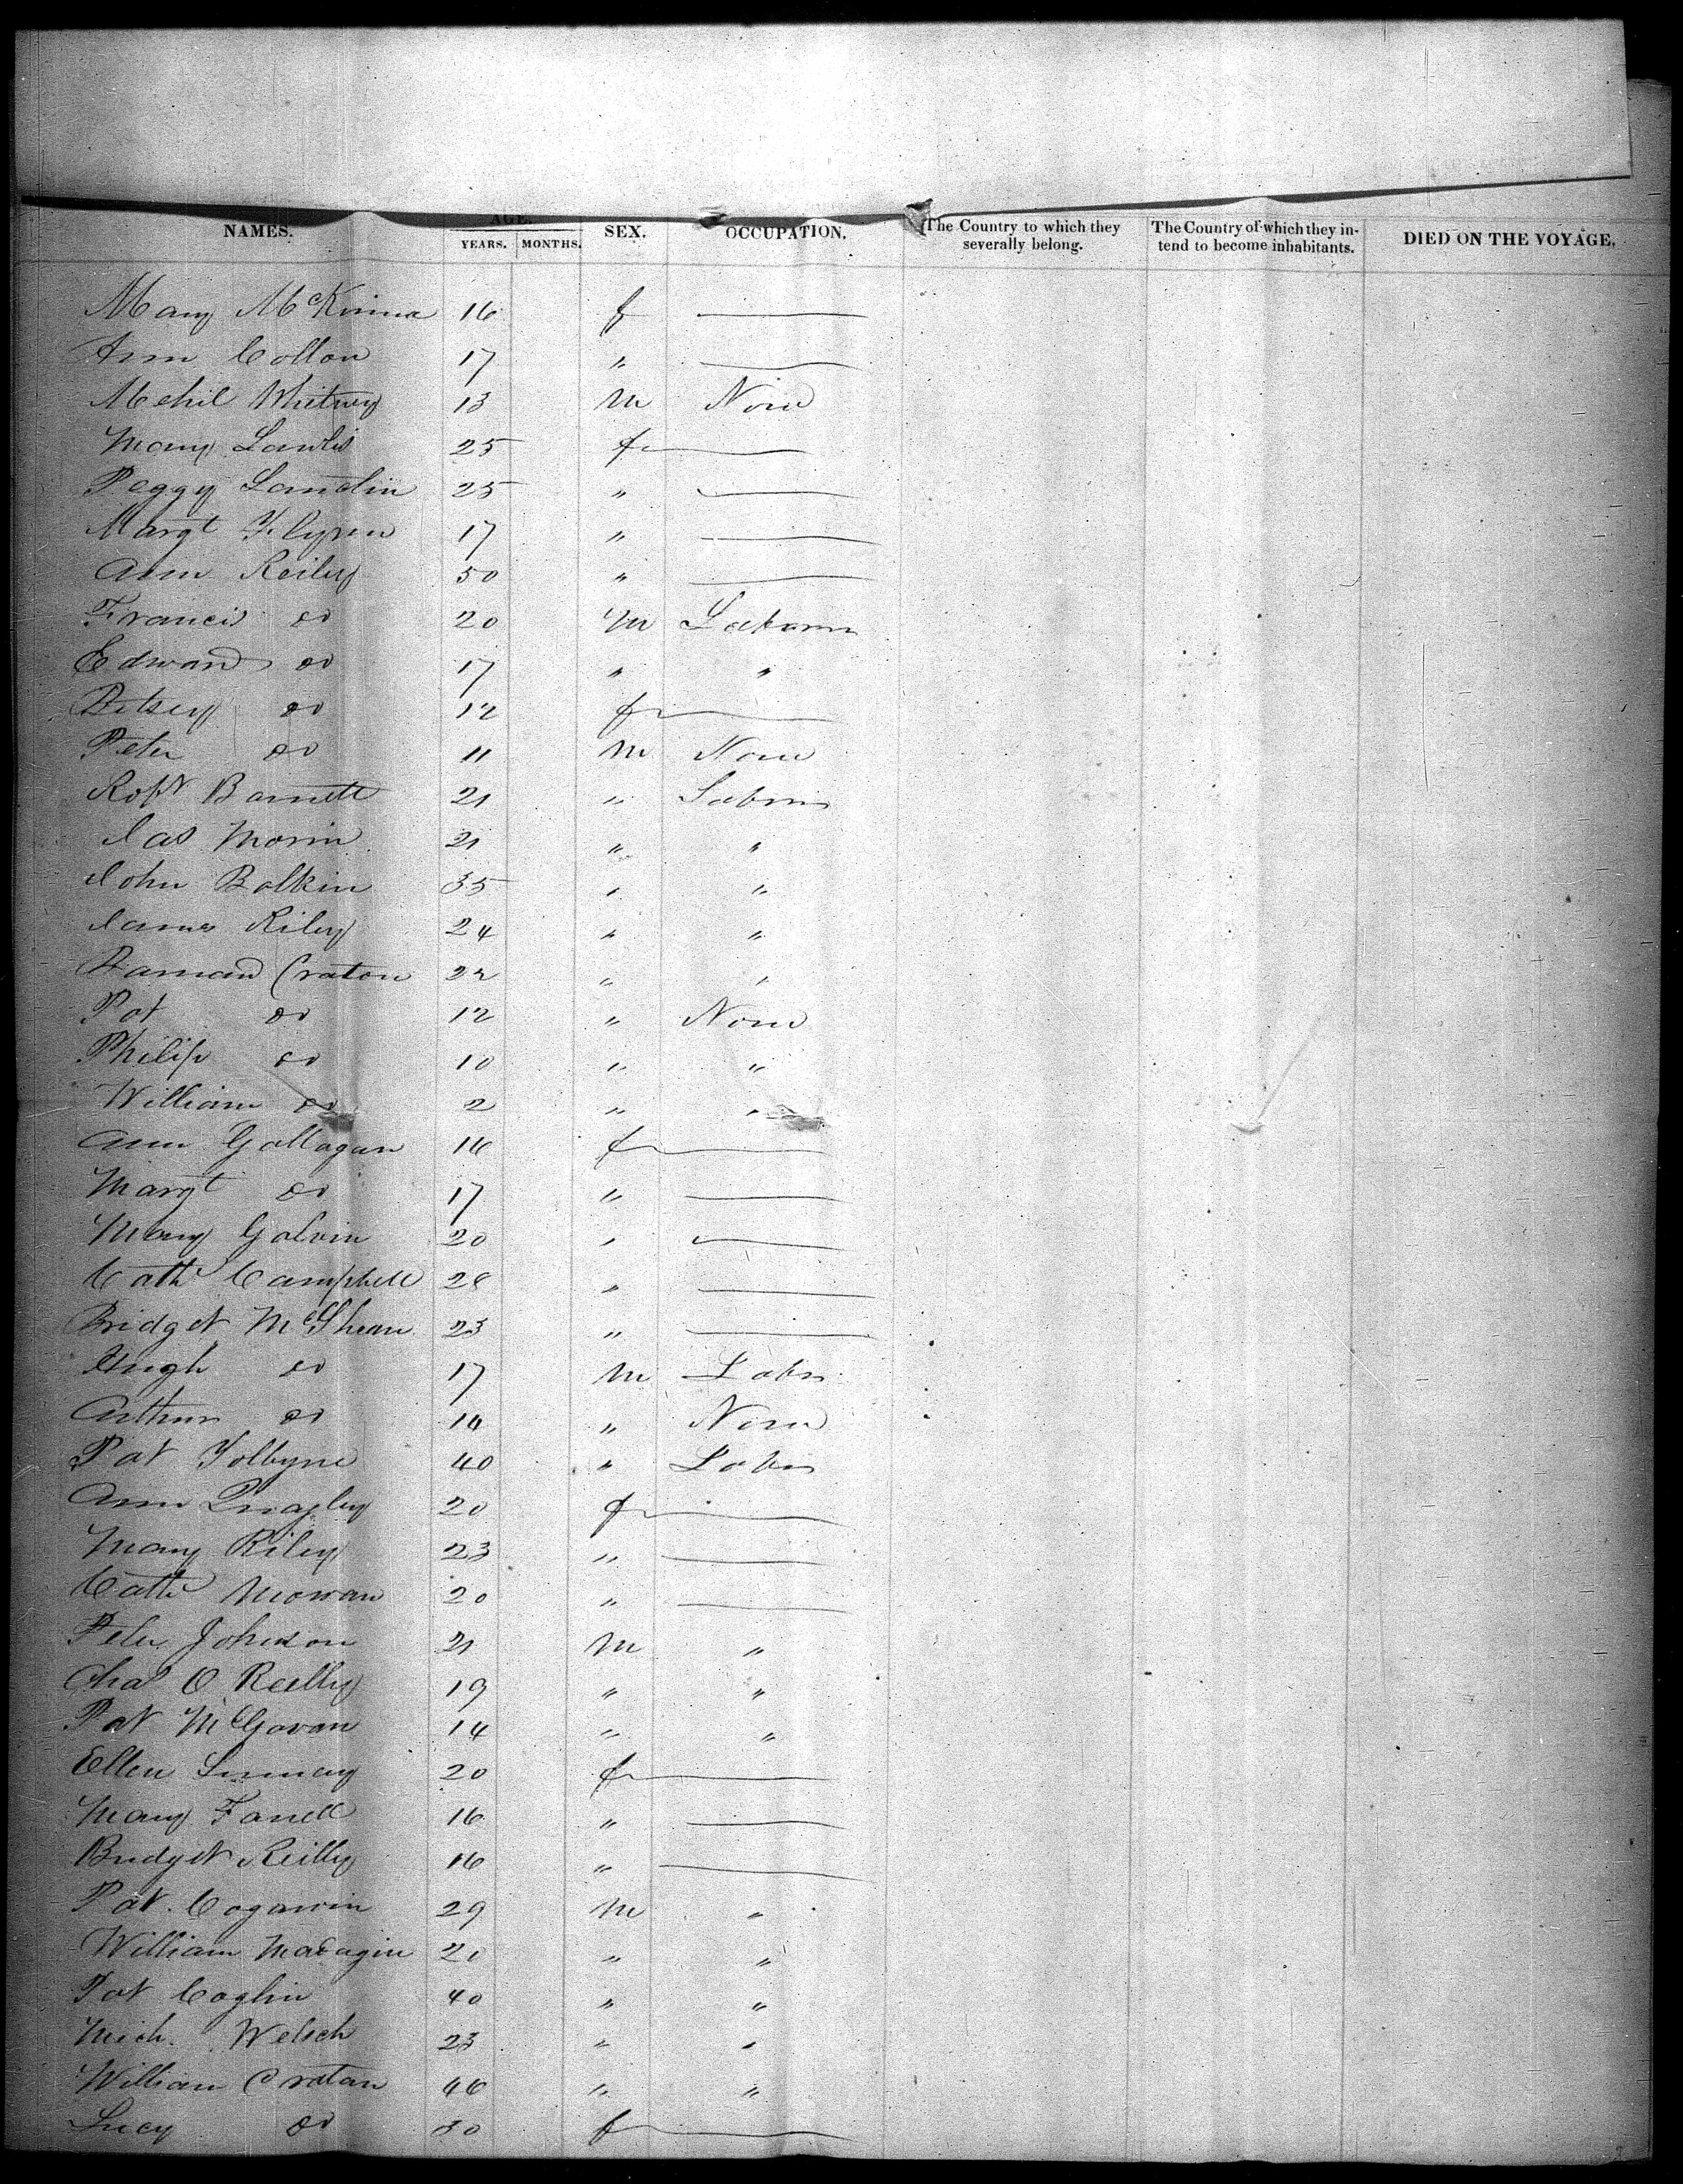 AGE.
NAMES. YEARS. MONTHS. SEX. OCCUPATION. The Country to which they severally belong. The Country of which they intend to become inhabitants. DIED ON THE VOYAGE.
Mary McKinna 16 f —
Ann Collon 17 " —
Mchil Whitney 13 m None
Mary Lawlis 25 f —
Peggy Landin 25 " —
Margt Flynn 17 " —
Ann Reiley 50 " —
Francis do 20 m
Edward do 17 " "
Betsey do 12 f —
Peter do 11 m None
Robt Barnett 21 "
Jas Morin 21 " "
John Balkin 35 " "
James Riley 24 " "
Craton 22 " "
Pat do 12 " None
Philip do 10 " "
William do 2 " "
Ann Gallagan 16 f —
Margt do 17 " —
Mary Galvin 20 " —
Cath Campbell 28 " —
Bridget McShean 23 " —
Hugh do 17 m Labr
Arthur do 14 " None
Pat 40 " Labr
Ann Quagley 20 f —
Mary Riley 23 " —
Cath Mowan 20 " —
Peter Johnson 21 m "
Chas O Reilly 19 " "
Pat McGovan 14 " "
Ellen 20 f —
Mary Farrell 16 " —
Bridget Reilly 16 " —
Pat. Cogavin 29 m "
William 20 " "
Pat Coglin 40 " "
Mich. Welsch 23 " "
William Cratan 46 " "
Lucy do 30 f —